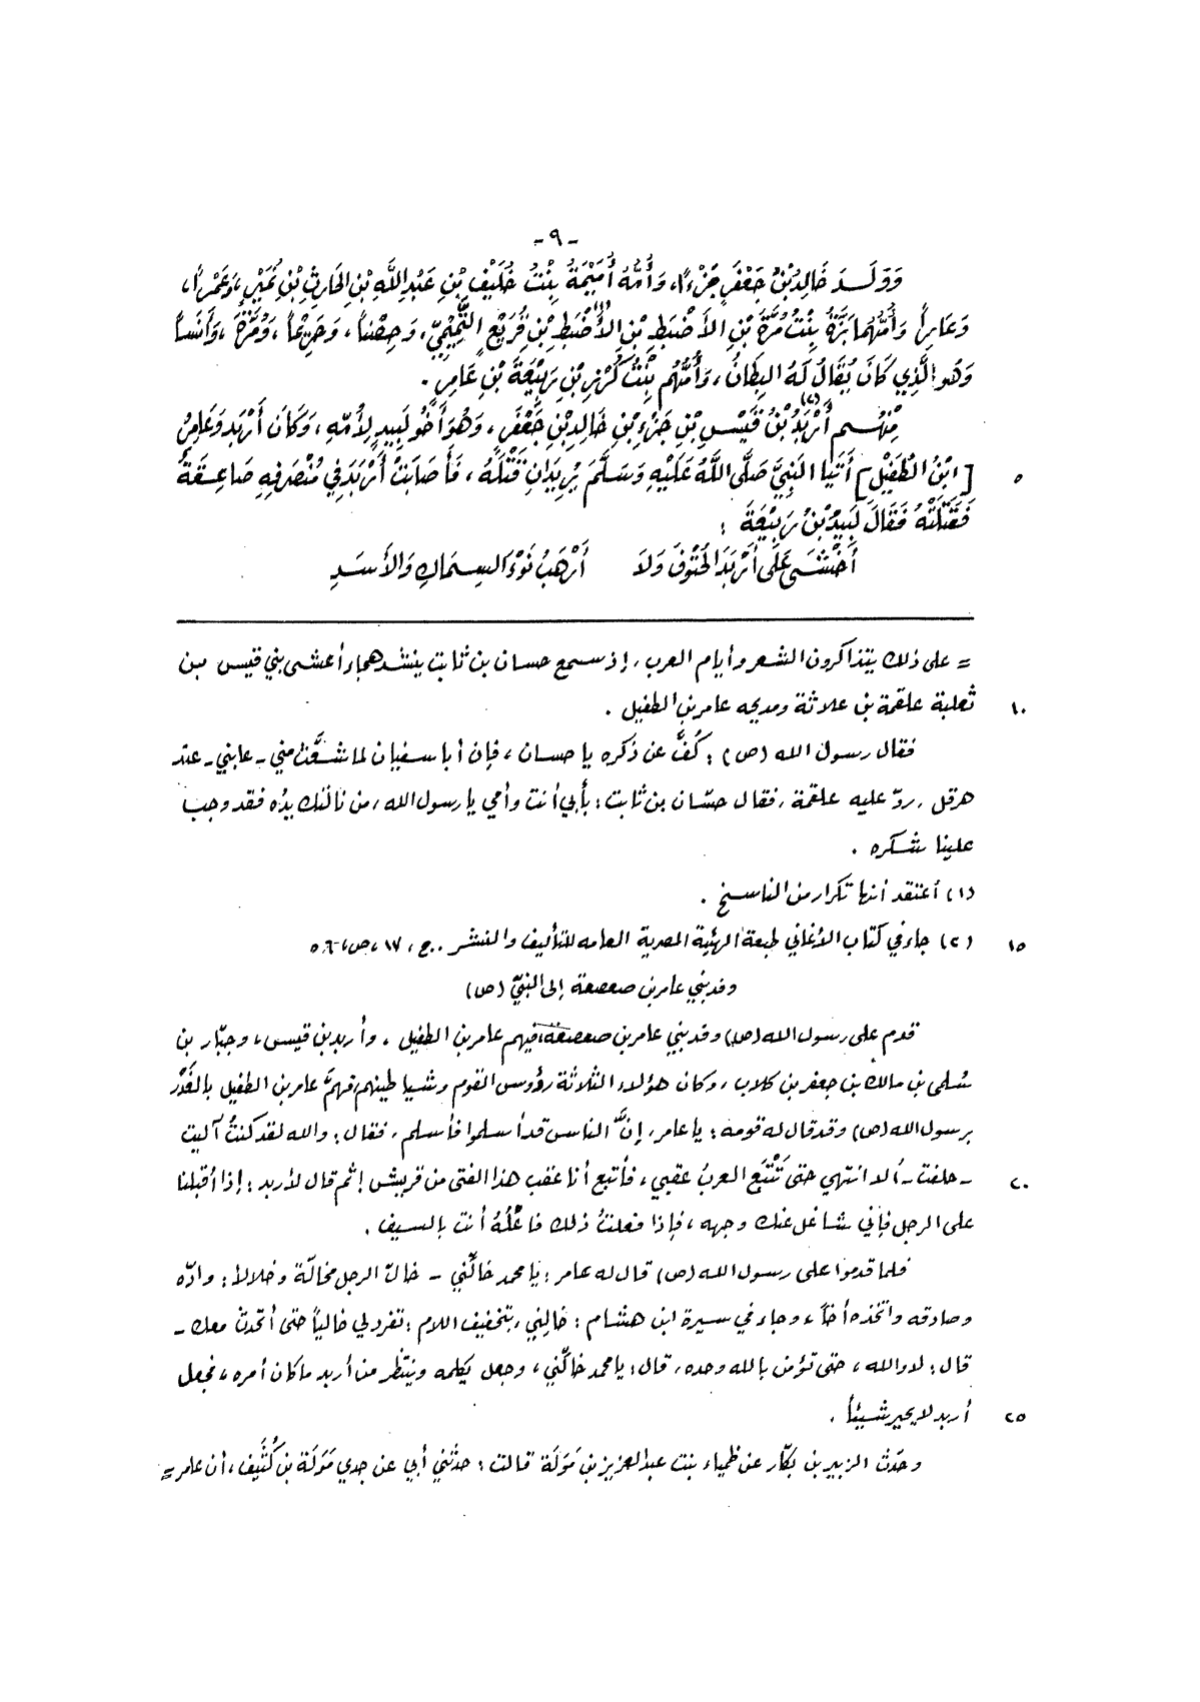 - ٩ -
وَوَلَدَ خَالِدُ بْنُ جَعْفَرٍ جَزْءًا، وَأُمُّهُ أُمَيْمَةُ بِنْتُ خُلَيْفِ بْنِ عَبْدِ اللَّهِ بْنِ الحَارِثِ بْنِ نُمَيْرٍ، وَعَمْراً،
وَعَامِراً وَأُمُّهُمَا بَرَّةُ بِنْتُ مُرَّةَ بْنِ الأَضْبَطِ بْنِ الأَضْبَطِ (١) بْنِ قُرَيْعٍ التَّمِيمِيِّ، وَحِصْناً، وَحَزِيْماً، وَمُرَّةَ، وَأَنَساً
وَهُوَ الَّذِي كَانَ يُقَالُ لَهُ البِطَانُ، وَأُمُّهُم بِنْتُ كُرْزِ بْنِ رَبِيْعَةَ بْنِ عَامِرٍ .
مِنْهُم أَرْبَدُ (٢) بْنُ قَيْسِ بْنِ جَزْءِ بْنِ خَالِدِ بْنِ جَعْفَرٍ، وَهُوَ أَخُو لَبِيدٍ لِأُمِّهِ، وَكَانَ أَرْبَد وَعَامِرُ
٥ [ابْنُ الطُّفَيْلِ] أَتَيَا النَبِيَّ صَلَّى اللَّهُ عَلَيْهِ وَسَلَّمَ يُرِيْدَانِ قَتْلَهُ، فَأَصَابَتْ أَرْبَدَ فِي مُنْصَرَفِهِ صَاعِقَةٌ
فَقَتَلَتْهُ فَقَالَ لَبِيدُ بْنُ رَبِيْعَةَ :
أَخْشَى عَلَى أَرْبَدَ الحُتُوفَ وَلاَ أَرْهَبُ نَوْءَ السِمَاكِ وَالأَسَدِ
= على ذلك يتذاكرون الشعر وأيام العرب، إذ سمع حسان بن ثابت ينشد هجاء أعشى بني قيس بن
١٠ ثعلبة علقمة بن علاثة ومديحه عامر بن الطفيل .
فقال رسول الله (ص) : كُفَّ عن ذكره يا حسان، فإن أبا سفيان لما شعَّث مني - عابني - عند
هرقل، ردّ عليه علقمة، فقال حسّان بن ثابت : بأبي أنت وأمي يا رسول الله، من نالتك يدُه فقد وجب
علينا شكره .
(١) أعتقد أنها تكرار من الناسخ .
١٥ (٢) جاء في كتاب الأغاني طبعة الهئية المصرية العامه للتأليف والنشر .. ج، ١٧، ص، ٥٦
وفد بني عامر بن صعصعة إلى النبيّ (ص)
قدم على رسول الله (ص) وفد بني عامر بن صعصعة، فيهم عامر بن الطفيل، وأربد بن قيس، وجبّار بن
سُلمى بن مالك بن جعفر بن كلاب، وكان هؤلاء الثلاثة رؤوس القوم وشياطينهم، فهمّ عامر بن الطفيل بالغَدْر
برسول الله (ص) وقد قال له قومه : يا عامر، إنَّ الناس قد أسلموا فأسلم، فقال : والله لقد كنتُ آليت
٢٠ - حلفت - ألا انتهي حتى تَتْبَع العربُ عقبي، فأتبع أنا عقب هذا الفتى من قريش ! ثم قال لأربد : إذا أقبلنا
على الرجل فإني شاغل عنك وجهه، فإذا فعلتُ ذلك فاعْلُهُ أنت بالسيف .
فلما قدموا على رسول الله (ص) قال له عامر : يا محمد خالَّني - خالّ الرجل مخالّة وخلالاً : وادّه
وصادقه واتخذه أخاً، وجاء في سيرة ابن هشام : خالِني، بتخفيف اللام : تفرد لي خالياً حتى أتحدث معك -
قال : لا والله، حتى تؤمن بالله وحده، قال : يا محمد خالَّني، وجعل يكلمه وينتظر من أربد ما كان أمره، فجعل
٢٥ أربد لا يحير شيئاً .
وحَدّث الزبير بن بكّار عن ظمياء بنت عبد العزيز بن مَوَلَة قالت : حدثني أبي عن جدي مَوَلَة بن كُثَيف، أن عامر =